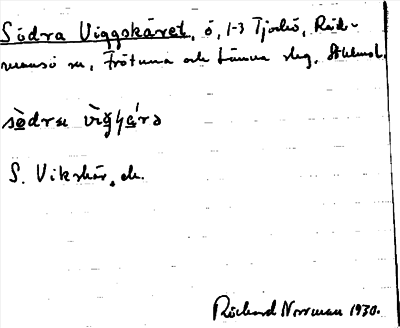 Södra Viggskäret, ö, 1-3 Tjockö, Råd-
mansö sn, Frötuna och Länna slg, Sthlms l.
södra
S. Vikskär, ek.
Rickard Norrman 1930.